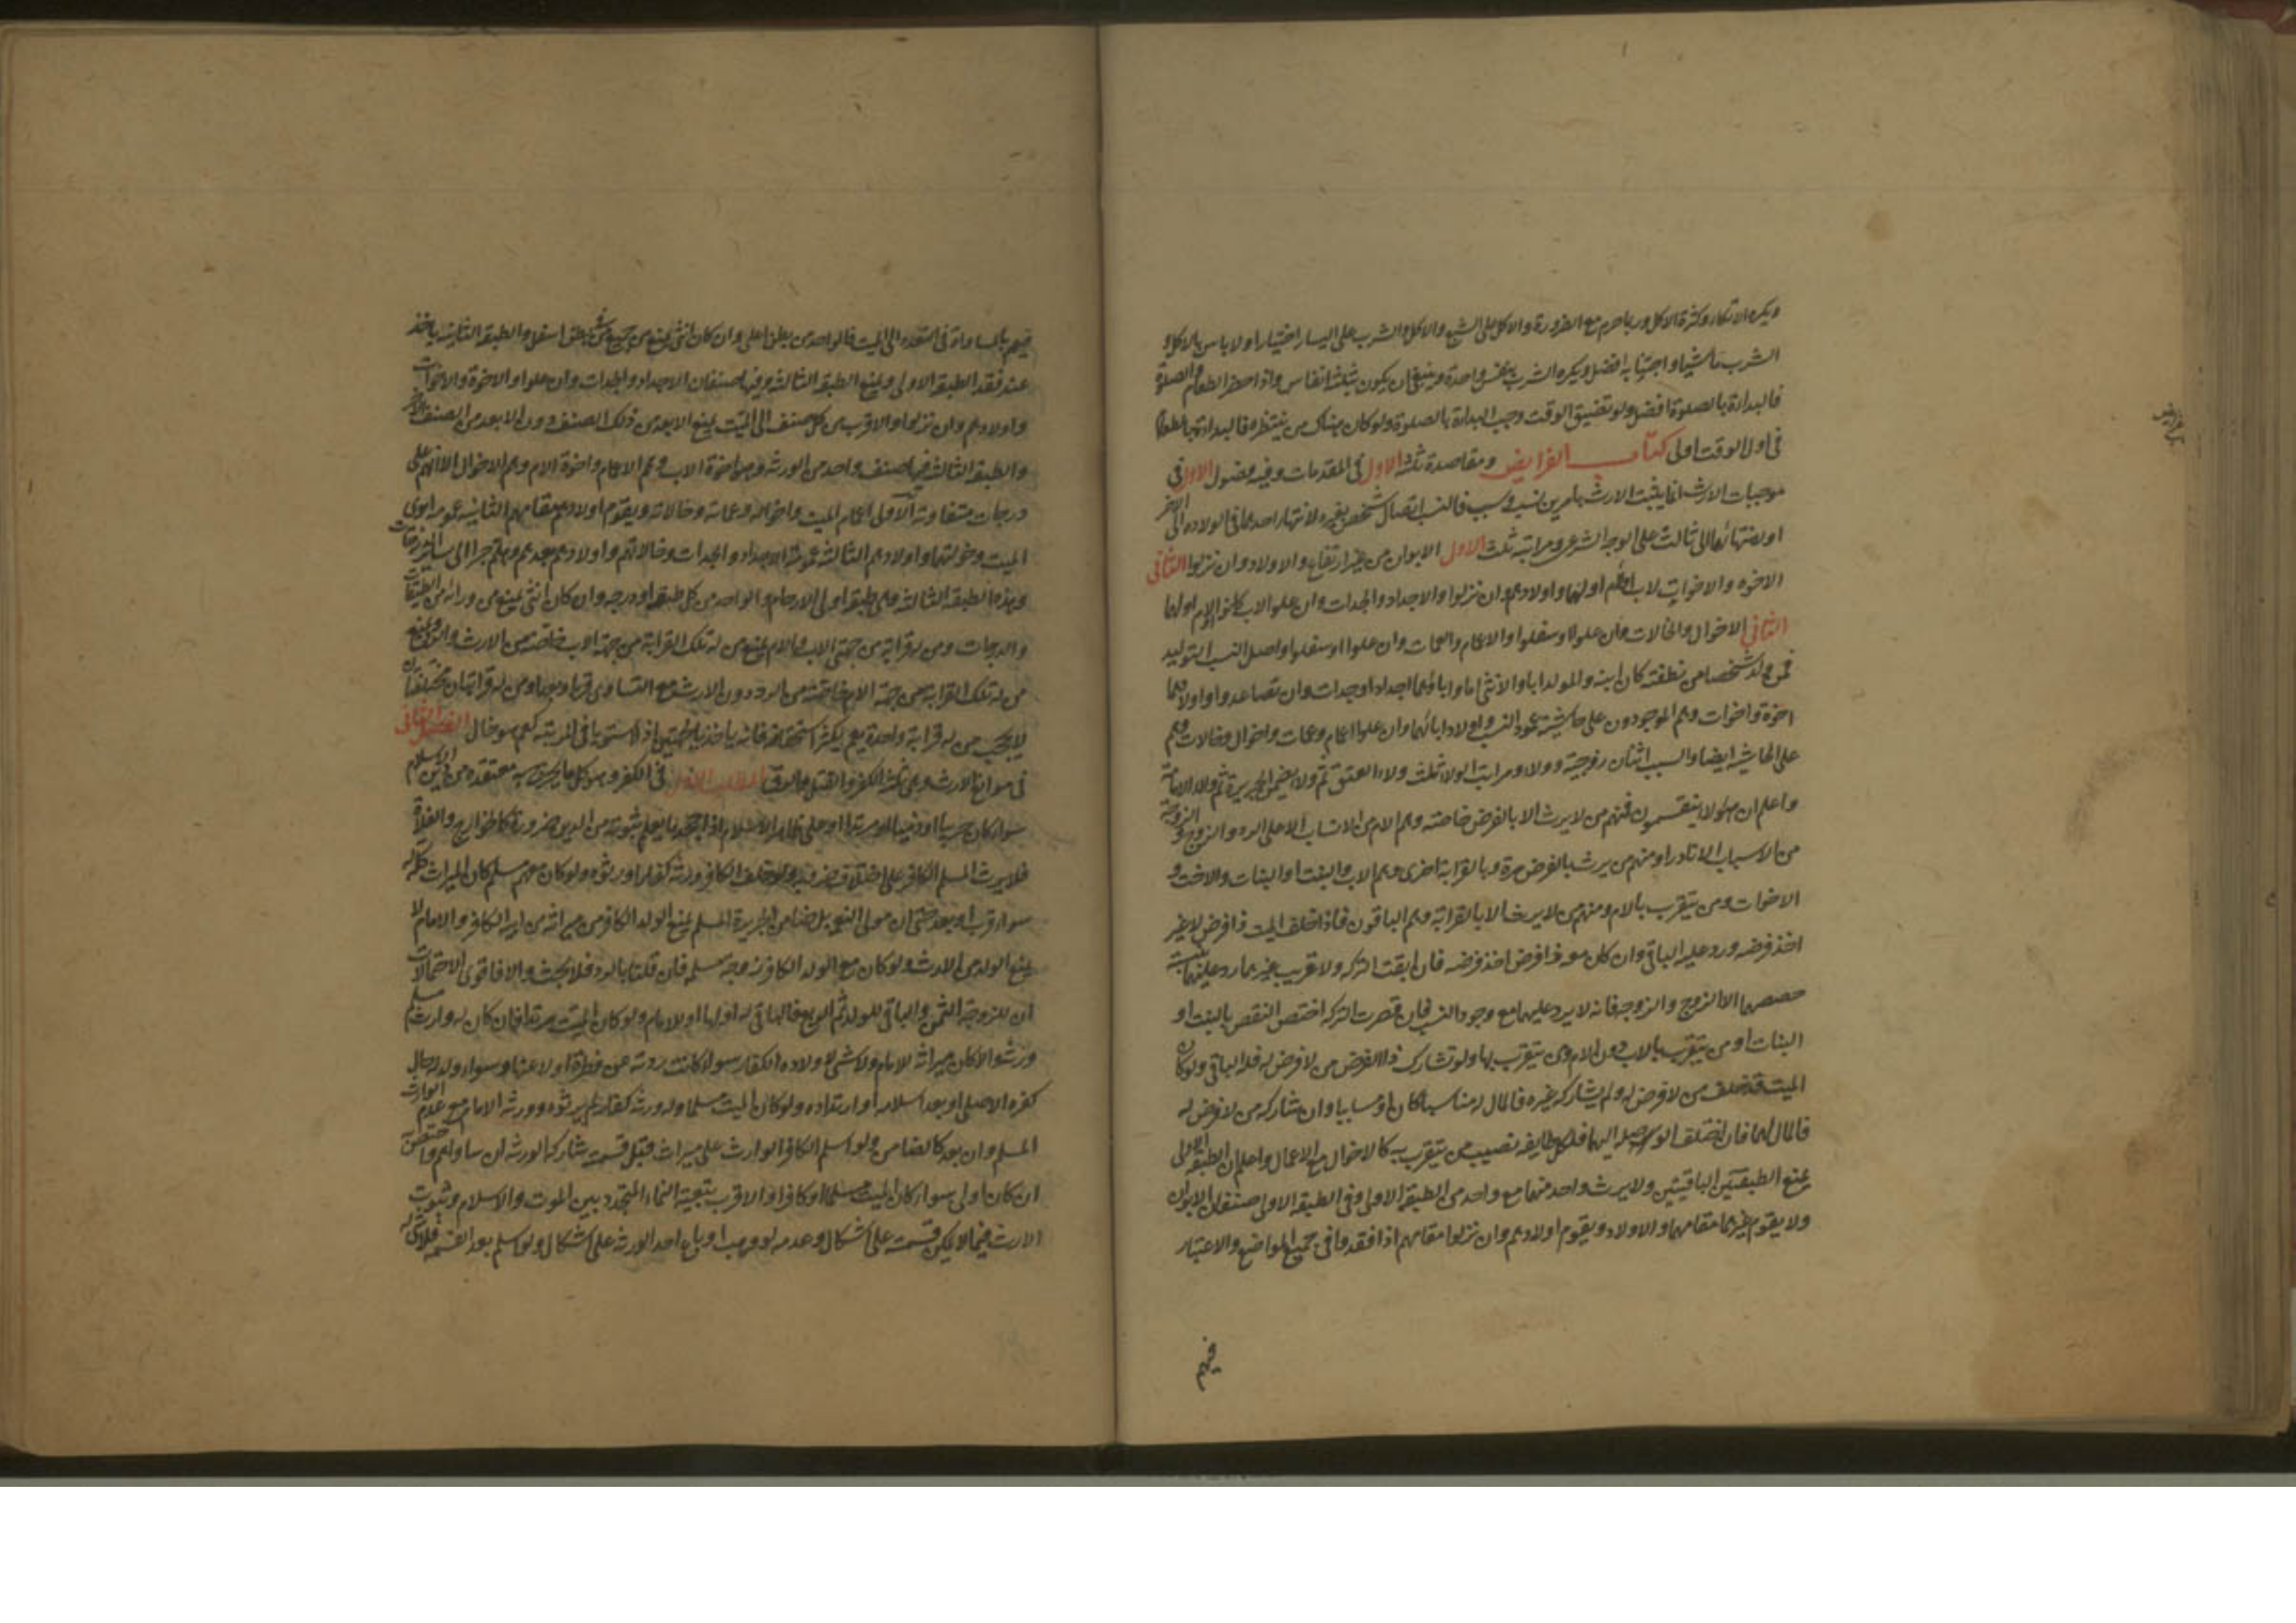 ويكره الاتكاء وكثرة الاكل وربما حرم مع الضرورة والاكل على الشبع والاكل والشرب على اليسار اختيارا ولا باس بالاكل و
الشرب ماشيا واجتنابه افضل ويكره الشرب بنفس واحدة وينبغي ان يكون بثلثة انفاس واذا حضر الطعام والصلوة
فالبداءة بالصلوة افضل ولو تضيق الوقت وجب البداءة بالصلوة ولو كان هناك من ينتظره فالبداءة بالطعام
في اول الوقت اولى كتاب الفرايض ومقاصده ثلثة الاول في المقدمات وفيه فصول الاول في
موجبات الارث انما يثبت الارث بامرين نسب وسبب فالنسب اتصال شخص بغيره لانتهاء احدهما في الولادة الى الاخر
او لانتهائهما الى ثالث على الوجه الشرعي ومراتبه ثلث الاول الابوان من غير ارتفاع والاولاد وان نزلوا الثاني
الاخوة والاخوات لاب او لام او لهما واولادهم وان نزلوا والاجداد والجدات وان علوا لاب كانوا او لام او لهما
الثاني الاخوال والخالات وان علوا او سفلوا والاعمام والعمات وان علوا او سفلوا واصل النسب التوليد
فمن ولد شخصا من نطفته كان ابنه والمولد ابا والانثى اما واباؤهما اجدادا وجدات وان تصاعدوا واولادهما
اخوة واخوات وهم الموجودون على حاشية عمود النسب واولاد ابائهما وان علوا اعمام وعمات واخوال وخالات وهم
على الحاشية ايضا والسبب اثنان زوجية وولاء ومراتب الولاء ثلث ولاء العتق ثم ولاء تضمن الجريرة ثم ولاء الامامة
واعلم ان هؤلاء ينقسمون فمنهم من لا يرث الا بالفرض خاصة وهم الام من الانساب الا على الرد والزوج والزوجة
من الاسباب الا نادرا ومنهم من يرث بالفرض مرة وبالقرابة اخرى وهم الاب والبنت او البنات والاخت و
الاخوات ومن يتقرب بالام ومنهم من لا يرث الا بالقرابة وهم الباقون فاذا خلف الميت ذا فرض لا غير
اخذ فرضه ورد عليه الباقي وان كان معه ذا فرض اخذ فرضه فان ابقت التركة ولا قريب غيرهما رد عليهما بنسبة
حصصهما الا الزوج والزوجة فانه لا يرد عليهما مع وجود النسب فان قصرت التركة اختص النقص بالبنت او
البنات او من يتقرب بالاب دون الام ومن يتقرب بها ولو تشارك ذا الفرض من لا فرض له فله الباقي ولو كان
الميت قد خلف من لا فرض له ولم يشاركه غيره فالمال له مناسبا كان او مسابيا وان شاركه من لا فرض له
فالمال لهما فان اختلف الوصلة اليهما فلكل طايفة نصيب من يتقرب به كالاخوال مع الاعمال واعلم ان الطبقة الاولى
تمنع الطبقتين الباقيتين ولا يرث واحد منهما مع واحد من الطبقة الاولى وفي الطبقة الاولى صنفان الابوان
ولا يقوم غيرهما مقامهما والاولاد ويقوم اولادهم وان نزلوا مقامهم اذا فقدوا في جميع المواضع والاعتبار
فيهم
فيهم بالمساواة في التعدد الى الميت فالواحد من بطن اعلى وان كان انثى يمنع جميع من في بطن اسفل والطبقة الثانية ياخذ
عند فقد الطبقة الاولى ويمنع الطبقة الثالثة وفيها صنفان الاجداد والجدات وان علوا والاخوة والاخوات
واولادهم وان نزلوا والاقرب من كل صنف الى الميت يمنع الابعد من ذلك الصنف دون الابعد من الصنف الاخر
والطبقة الثالثة فيها صنف واحد من الورثة وهو اخوة الاب وهم الاعمام واخوة الام وهم الاخوال الا انهم على
درجات متفاوتة الاولى اعمام الميت واخواله وعماته وخالاته ويقوم اولادهم مقامهم الثانية عمومة ابوي
الميت وخؤولتهما واولادهم الثالثة عمومة الاجداد والجدات وخالاتهم واولادهم بعدهم وهلم جرا الى ساير الدرجات
وهذه الطبقة الثالثة هي طبقة اولي الارحام والواحد من كل طبقة او درجة وان كان انثى يمنع من ورائه من الطبقات
والدرجات ومن له قرابة من جهتي الاب والام يمنع من له تلك القرابة من جهة الاب خاصة من الارث والرد ويمنع
من له تلك القرابة من جهة الام خاصة من الرد دون الارث مع التساوي قربا وبعدا ومن له قرابتان مختلفتان
لا يحجب من له قرابة واحدة نعم يكثر استحقاقه فانه ياخذ بالجهتين اذا استويا في المرتبة كعم هو خال الفصل الثاني
في موانع الارث وهي ثلثة الكفر والقتل والرق المطلب الاول في الكفر وهو كل ما يخرج به معتقده من دين الاسلام
سواء كان حربيا او ذميا او مرتدا او على ظاهر الاسلام اذا جحد ما يعلم ثبوته من الدين ضرورة كالخوارج والغلاة
فلا يرث المسلم الكافر على اختلاف ضروبه ولو خلف الكافر ورثة كفارا ورثوه ولو كان معهم مسلم كان الميراث كله له
سواء قرب او بعد حتى ان مولى النعمة بل ضامن الجريرة المسلم يمنع الولد الكافر من ميراثه من ابيه الكافر والامام لا
يمنع الولد من الارث ولو كان مع الولد الكافر زوجة مسلمة فان قلنا بالرد فلا بحث والا فاقوى الاحتمالات
ان للزوجة الثمن والباقي للولد ثم الربع فالباقي له او لها او للامام ولو كان الميت مرتدا فان كان له وارث مسلم
ورثه والا كان ميراثه للامام ولا شيء لاولاده الكفار سواء كانت ردته عن فطرة او لا عنها وسواء ولد له حال
كفره الاصلي او بعد اسلامه او ارتداده ولو كان الميت مسلما وله ورثة كفار لم يرثوه وورثه الامام مع عدم الوارث
المسلم وان بعد كالضامن ولو اسلم الكافر الوارث على ميراث قبل قسمته شارك الورثة ان ساواهم واختص
ان كان اولى سواء كان الميت مسلما او كافرا والاقرب تبعية النماء المتجدد بين الموت والاسلام وثبوت
الارث فيما لا يمكن قسمته على اشكال وعدمه لو وهب او باع احد الورثة على اشكال ولو اسلم بعد القسمة فلا شيء له